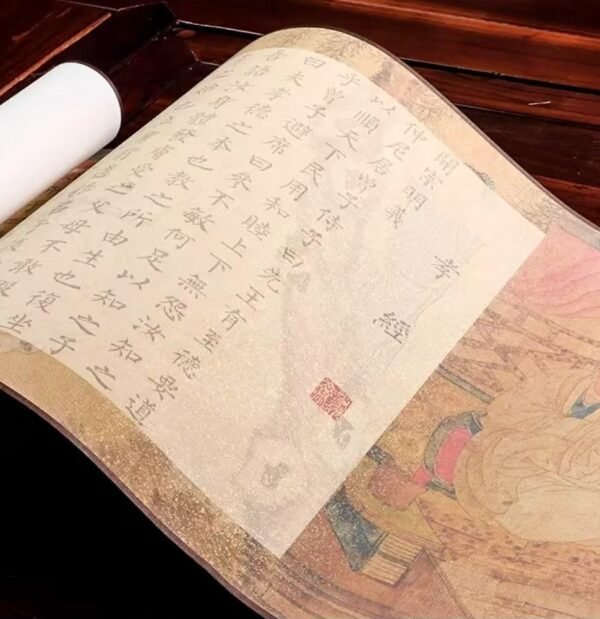 孝經
開宗明義
仲尼居曾子侍子曰先王有至德要道
以順天下民用和睦上下無怨汝知之
乎曾子避席曰參不敏何足以知之子
曰夫孝德之本也教之所由生也復坐
吾語汝身體髮膚受之父母不敢毀